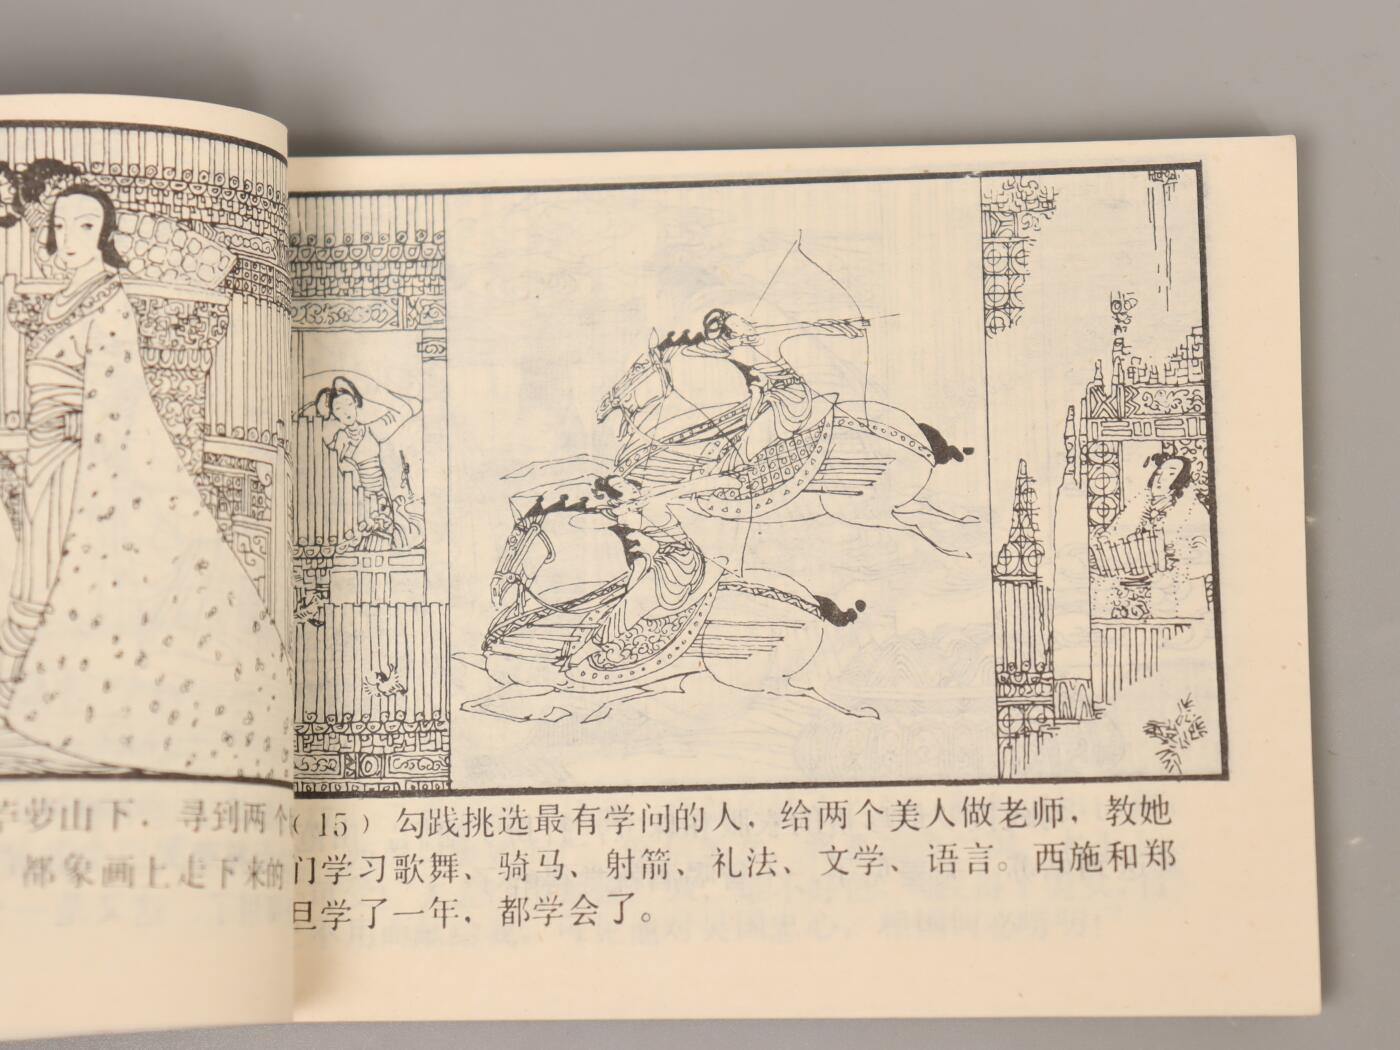 萝山下，寻到两个
都象画上走下来的
（15）勾践挑选最有学问的人，给两个美人做老师，教她
们学习歌舞、骑马、射箭、礼法、文学、语言。西施和郑
旦学了一年，都学会了。